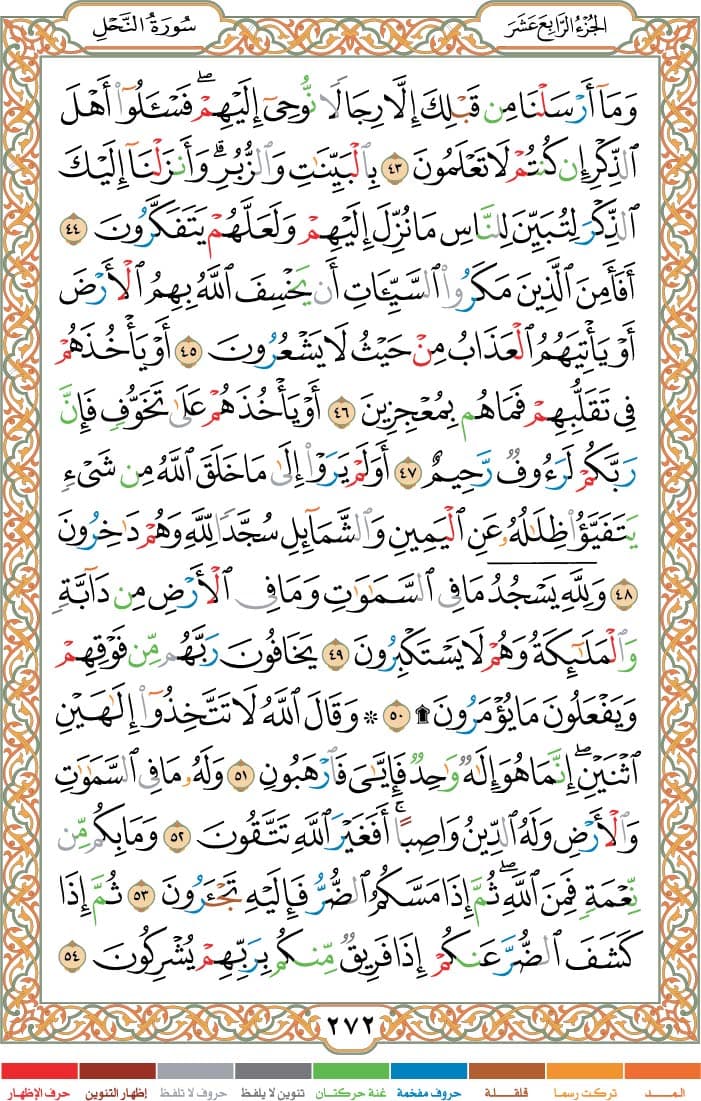 الجزء الرابع عشر
سورة النحل
وَمَآ أَرْسَلْنَا مِن قَبْلِكَ إِلَّا رِجَالًا نُّوحِىٓ إِلَيْهِمْ ۖ فَسْـَٔلُوٓا۟ أَهْلَ
ٱلذِّكْرِ إِن كُنتُمْ لَا تَعْلَمُونَ ٤٣ بِٱلْبَيِّنَـٰتِ وَٱلزُّبُرِ ۗ وَأَنزَلْنَآ إِلَيْكَ
ٱلذِّكْرَ لِتُبَيِّنَ لِلنَّاسِ مَا نُزِّلَ إِلَيْهِمْ وَلَعَلَّهُمْ يَتَفَكَّرُونَ ٤٤
أَفَأَمِنَ ٱلَّذِينَ مَكَرُوا۟ ٱلسَّيِّـَٔاتِ أَن يَخْسِفَ ٱللَّهُ بِهِمُ ٱلْأَرْضَ
أَوْ يَأْتِيَهُمُ ٱلْعَذَابُ مِنْ حَيْثُ لَا يَشْعُرُونَ ٤٥ أَوْ يَأْخُذَهُمْ
فِى تَقَلُّبِهِمْ فَمَا هُم بِمُعْجِزِينَ ٤٦ أَوْ يَأْخُذَهُمْ عَلَىٰ تَخَوُّفٍ فَإِنَّ
رَبَّكُمْ لَرَءُوفٌ رَّحِيمٌ ٤٧ أَوَلَمْ يَرَوْا۟ إِلَىٰ مَا خَلَقَ ٱللَّهُ مِن شَىْءٍ
يَتَفَيَّؤُا۟ ظِلَـٰلُهُۥ عَنِ ٱلْيَمِينِ وَٱلشَّمَآئِلِ سُجَّدًا لِّلَّهِ وَهُمْ دَٰخِرُونَ
٤٨ وَلِلَّهِ يَسْجُدُ مَا فِى ٱلسَّمَـٰوَٰتِ وَمَا فِى ٱلْأَرْضِ مِن دَآبَّةٍ
وَٱلْمَلَـٰٓئِكَةُ وَهُمْ لَا يَسْتَكْبِرُونَ ٤٩ يَخَافُونَ رَبَّهُم مِّن فَوْقِهِمْ
وَيَفْعَلُونَ مَا يُؤْمَرُونَ ۩ ٥٠ ۞ وَقَالَ ٱللَّهُ لَا تَتَّخِذُوٓا۟ إِلَـٰهَيْنِ
ٱثْنَيْنِ ۖ إِنَّمَا هُوَ إِلَـٰهٌ وَٰحِدٌ فَإِيَّـٰىَ فَٱرْهَبُونِ ٥١ وَلَهُۥ مَا فِى ٱلسَّمَـٰوَٰتِ
وَٱلْأَرْضِ وَلَهُ ٱلدِّينُ وَاصِبًا ۚ أَفَغَيْرَ ٱللَّهِ تَتَّقُونَ ٥٢ وَمَا بِكُم مِّن
نِّعْمَةٍ فَمِنَ ٱللَّهِ ۖ ثُمَّ إِذَا مَسَّكُمُ ٱلضُّرُّ فَإِلَيْهِ تَجْـَٔرُونَ ٥٣ ثُمَّ إِذَا
كَشَفَ ٱلضُّرَّ عَنكُمْ إِذَا فَرِيقٌ مِّنكُم بِرَبِّهِمْ يُشْرِكُونَ ٥٤
٢٧٢
المـــد
تركت رسما
قلقلة
حروف مفخمة
غنة حركتان
تنوين لا يلفظ
حروف لا تلفظ
إظهار التنوين
حرف الإظهار